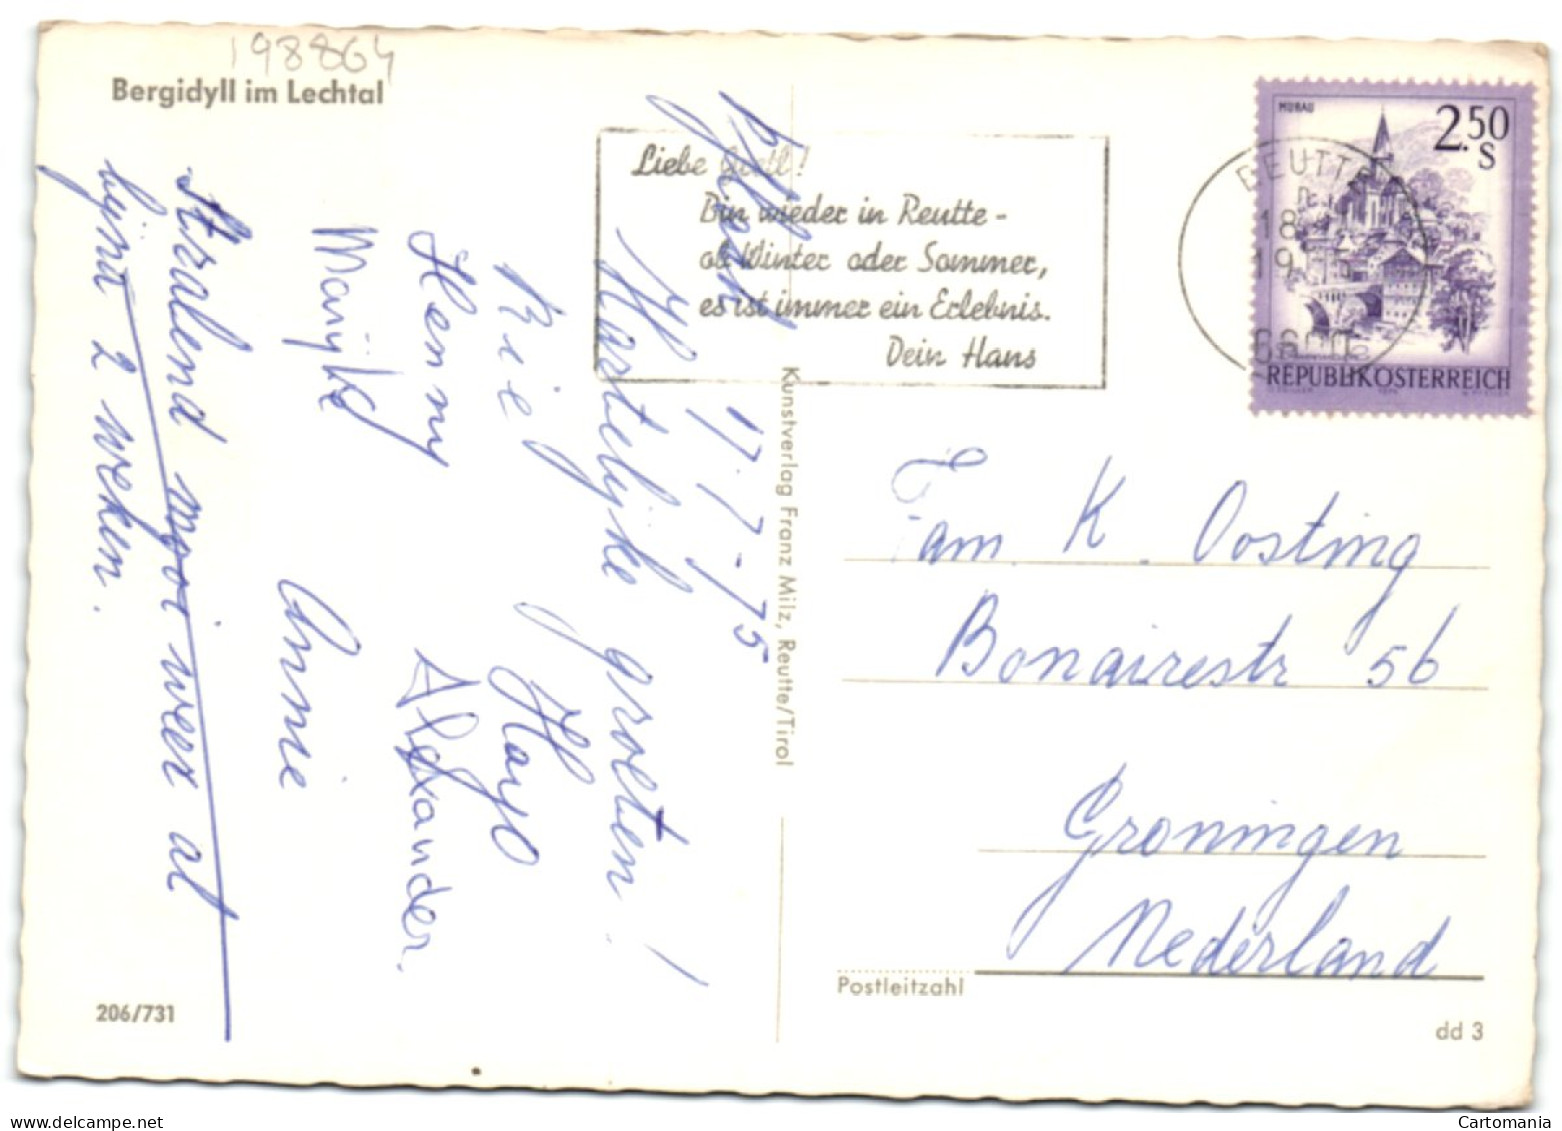 198864
Bergidyll im Lechtal
17-7-75
Hartelijke groeten!
Riel Hayo
Henny Alexander.
Marijke
Annie
Stralend mooi weer al
bijna 2 weken.
206/731
Kunstverlag Franz Milz, Reutte/Tirol
Liebe Gretl!
Bin wieder in Reutte -
ob Winter oder Sommer,
es ist immer ein Erlebnis.
Dein Hans
REUTTE
18
6600
MURAU
2.50
S
REPUBLIK ÖSTERREICH
Fam. K. Oosting
Bonairestr 56
Groningen
Nederland
Postleitzahl
dd 3
www.delcampe.net
Cartomania